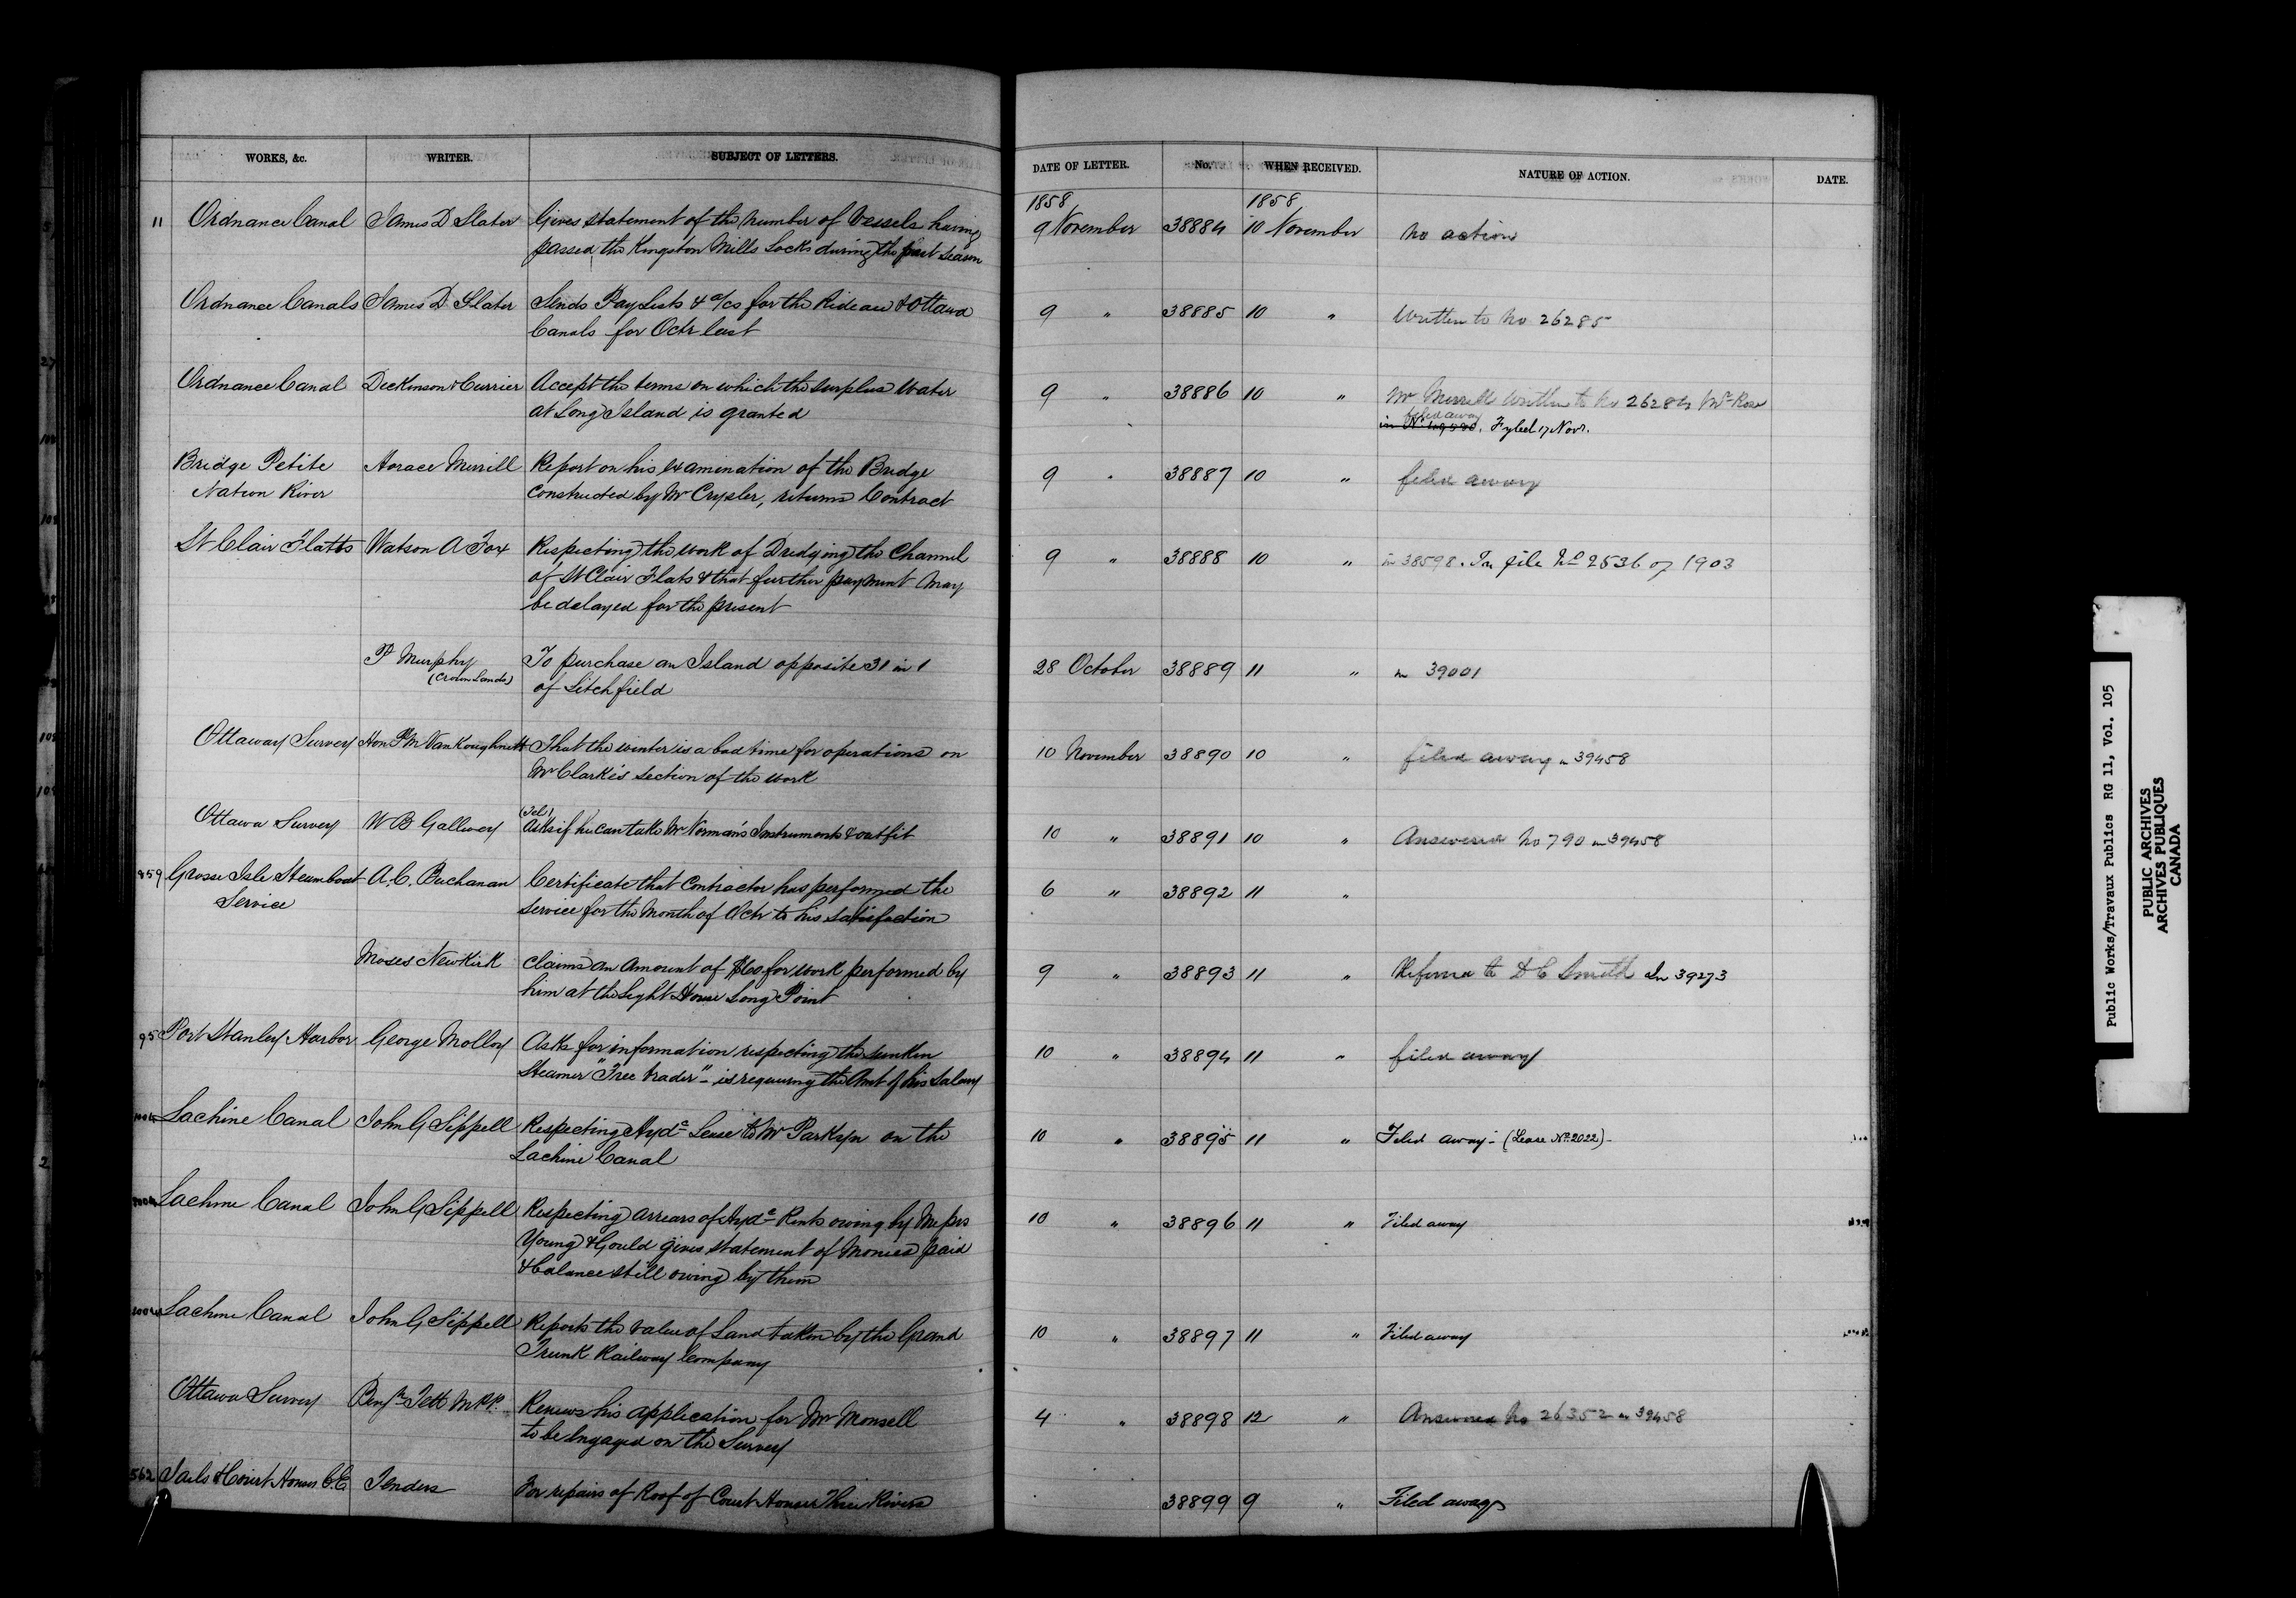 WORKS, &c. WRITER. SUBJECT OF LETTERS. DATE OF LETTER. No. WHEN RECEIVED. NATURE OF ACTION. DATE.
1858 1858
11 Ordnance Canal James D Slater Gives statement of the number of Vessels having 9 November 38884 10 November no action
passed the Kingston Mills Locks during the past season
Ordnance Canals James D Slater Sends Pay Lists & a/cs for the Rideau & Ottawa 9 " 38885 10 " Written to No 26285
Canals for Octr last
Ordnance Canal Dickinson & Currier Accept the terms on which the surplus water 9 " 38886 10 " Mr Merrill written to No 26284 Mr Rose
at Long Island is granted filed away
Fyled 17 Novr.
Bridge Petite Horace Merrill Report on his examination of the Bridge 9 " 38887 10 " filed away
Nation River constructed by Mr Crysler, returns Contract
St Clair Flatts Watson A Fox Respecting the work of Dredging the Channel 9 " 38888 10 " in 38598. In file No 2536 of 1903
of St Clair Flats & that further payment may
be delayed for the present
P Murphy To purchase an Island opposite 31 in 1 28 October 38889 11 " in 39001
(Crown Lands) of Litchfield
Ottaway Survey Hon P M VanKoughnett That the winter is a bad time for operations on 10 November 38890 10 " filed away in 39458
Mr Clarke's section of the work
(Tel)
Ottawa Survey W B Gallwey Asks if he can take Mr Norman's Instruments & outfit 10 " 38891 10 " Answered No 790 in 39458
859 Grosse Isle Steamboat A. C. Buchanan Certificate that Contractor has performed the 6 " 38892 11 "
Service service for the month of Octr to his satisfaction
Moses Newkirk Claims an amount of $60 for work performed by 9 " 38893 11 " Referred to D C Smith In 39273
him at the Light House Long Point
95 Port Stanley Harbor George Molloy Asks for information respecting the sunken 10 " 38894 11 " filed away
Steamer "Free trader" - is requiring the Amt of his Salary
Lachine Canal John G Sippell Respecting Hydc Lease to Mr Parkyn on the 10 " 38895 11 " Filed away - (Lease No 2022) -
Lachine Canal
Lachine Canal John G Sippell Respecting arrears of Hydc Rents owing by Messrs 10 " 38896 11 " Filed away
Young & Gould gives statement of Monies paid
& balance still owing by them
Lachine Canal John G Sippell Reports the value of Land taken by the Grand 10 " 38897 11 " Filed away
Trunk Railway Company
Ottawa Survey Benjn Tett M.P.P. Renews his application for Mr Monsell 4 " 38898 12 " Answered No 26352 in 39458
to be Engaged on the Survey
562 Jails & Court Houses C.E Tenders For repairs of Roof of Court House Three Rivers 38899 9 " Filed away
Public Works/Travaux Publics RG 11, Vol. 105
PUBLIC ARCHIVES
ARCHIVES PUBLIQUES
CANADA